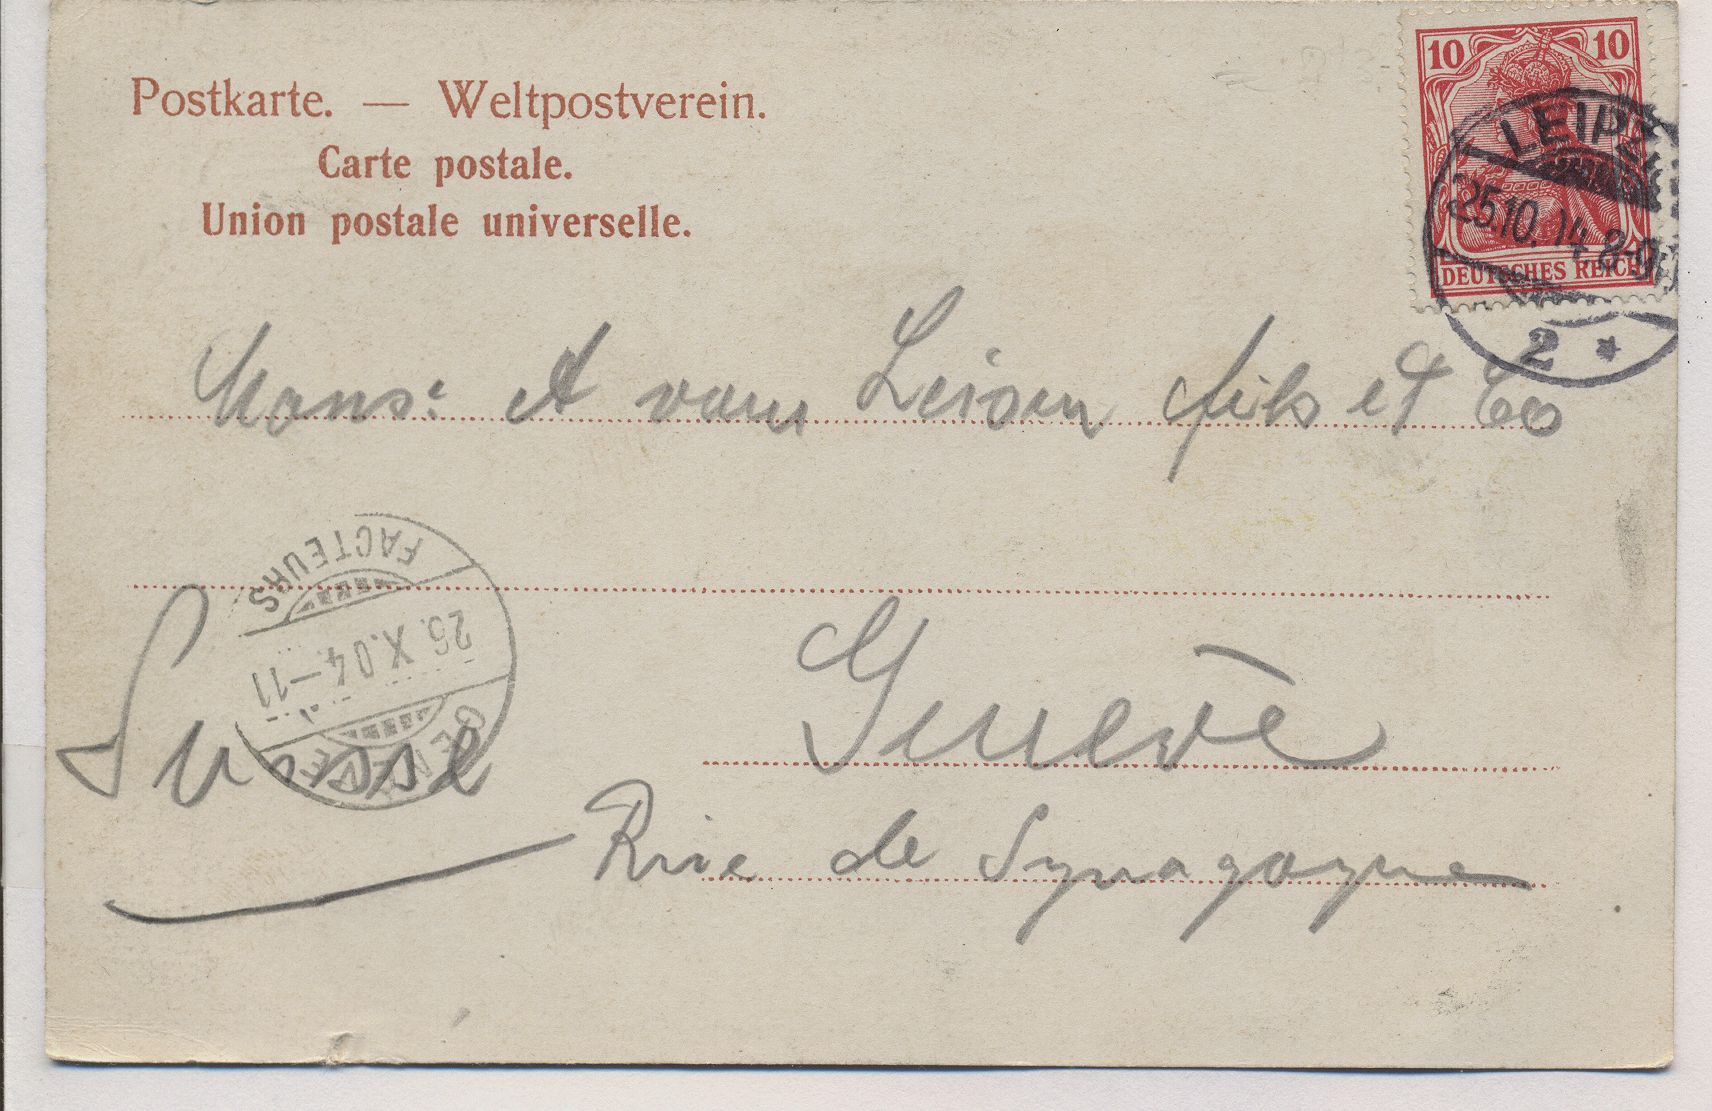 Postkarte. — Weltpostverein.
Carte postale.
Union postale universelle.
10 10
DEUTSCHES REICH
LEIPZ
25.10. 04. 8-9
2 *
Mons: A vam Leisen fils et Co
FACTEURS
26. X. 04 – 11
GENEVE
Suisse
Genève
Rue de Synagogue